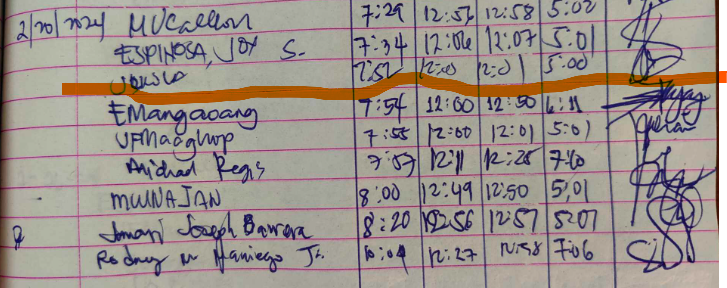 2/20/2024 MVCallon 7:29 12:57 12:58 5:02
ESPINOSA, JOY S. 7:34 12:06 12:07 5:01
7:52 5:00
EMangaoang 7:54 12:00 12:50 6:11
VFMaaghop 7:55 12:00 12:01 5:01
Michael Regis 7:57 12:11 12:25 7:10
MWNAJAN 8:00 12:49 12:50 5:01
Joseph Barrera 8:20 12:56 12:57 5:07
Rodney M Maniego Jr. 10:04 12:27 12:58 7:06